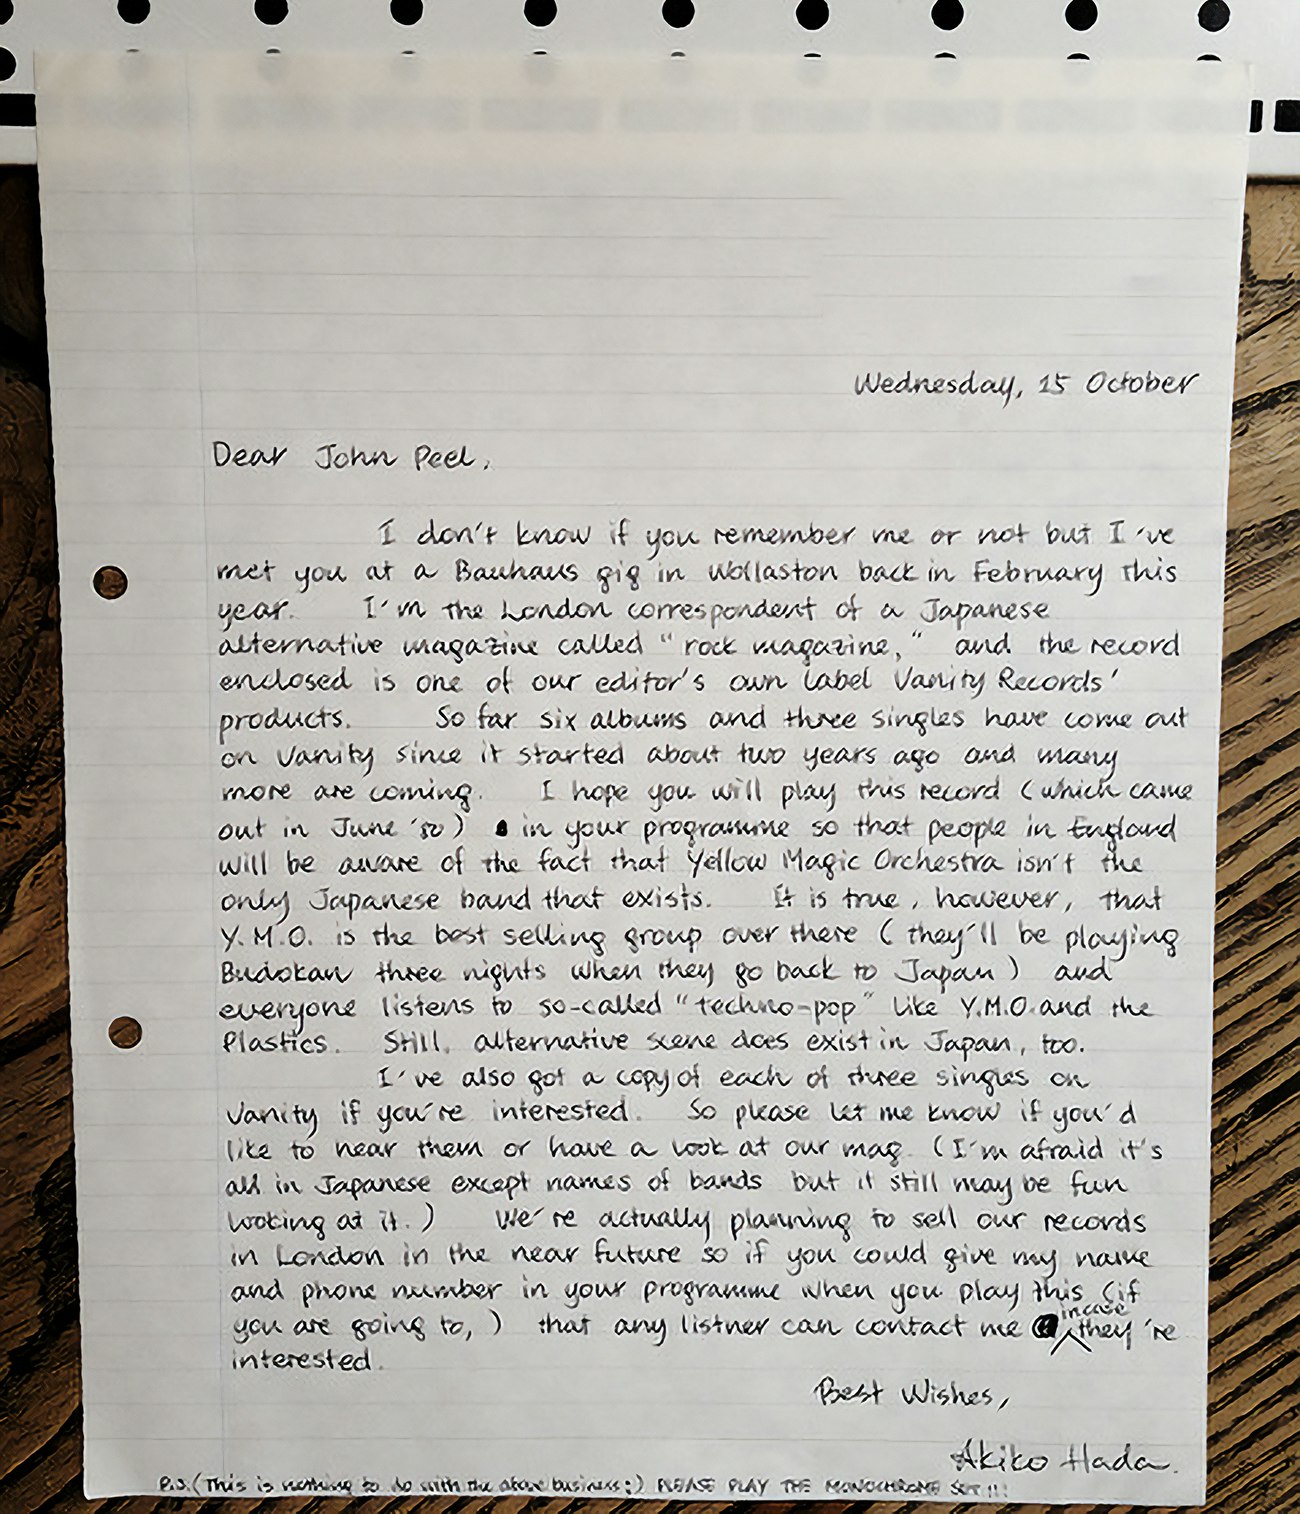 Wednesday, 15 October
Dear John Peel,
I don't know if you remember me or not but I've
met you at a Bauhaus gig in Wollaston back in February this
year. I'm the London correspondent of a Japanese
alternative magazine called "rock magazine," and the record
enclosed is one of our editor's own label Vanity Records'
products. So far six albums and three singles have come out
on Vanity since it started about two years ago and many
more are coming. I hope you will play this record (which came
out in June '80) in your programme so that people in England
will be aware of the fact that Yellow Magic Orchestra isn't the
only Japanese band that exists. It is true, however, that
Y.M.O. is the best selling group over there (they'll be playing
Budokan three nights when they go back to Japan) and
everyone listens to so-called "techno-pop" like Y.M.O. and the
Plastics. Still, alternative scene does exist in Japan, too.
I've also got a copy of each of three singles on
Vanity if you're interested. So please let me know if you'd
like to hear them or have a look at our mag. (I'm afraid it's
all in Japanese except names of bands but it still may be fun
looking at it.) We're actually planning to sell our records
in London in the near future so if you could give my name
and phone number in your programme when you play this (if
you are going to,) that any listner can contact me incase they're
interested.
Best Wishes,
Akiko Hada.
P.S. (This is nothing to do with the above business;) PLEASE PLAY THE MONOCHROME SET!!!